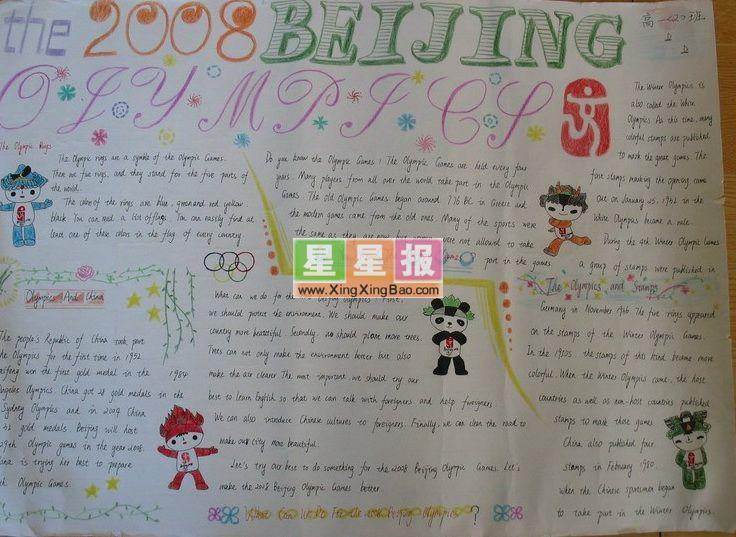 the 2008 BEIJING
OLYMPICS
高一(2)班
The Olympic Rings
The Olympic rings are a symble of the Olympic Games.
There are five rings, and they stand for the five parts of
the world.
The colors of the rings are blue, green and red yellow
black. You can read a list of flags. You can easily find at
least one of these colors in the flag of every country.
Do you know the Olympic Games? The Olympic Games are held every four
years. Many players from all over the world take part in the Olympic
Games. The old Olympic Games began around 776 BC in Greece and
the modern games came from the old ones. Many of the sports were
the same as they are now
were not allowed to take
part in the games.
The Winter Olympics is
also called the White
Olympics. At this time, many
colorful stamps are published
to mark the great games. The
first stamps marking the opening came
out on January 25, 1932 in the
White Olympics became a rule.
During the 4th Winter Olympic Games
a group of stamps were published in
The Olympics and Stamps
Germany in November 1936. The five rings appeared
on the stamps of the Winter Olympic Games.
In the 1950s, the stamps of this kind became more
colorful. When the Winter Olympics came, the host
countries as well as non-host countries published
stamps to mark those games.
China also published four
stamps in February 1980.
when the Chinese sportsmen began
to take part in the Winter Olympics.
Olympics And China
The people's Republic of China took part
the Olympics for the first time in 1952.
won the first gold medal in the 1984
Angeles Olympics. China got 28 gold medals in the
Sydney Olympics and in 2004 China
gold medals. Beijing will host
29th Olympic games in the year 2008.
China is trying her best to prepare
Olympic Games.
What can we do for the Beijing Olympics? First,
we should protect the environment. We should make our
country more beautiful. Secondly, we should plant more trees.
Trees can not only make the environment better but also
make the air clearer. The most important, we should try our
best to learn English so that we can talk with foreigners and help foreigners.
We can also introduce Chinese cultures to foreigners. Finally, we can clean the road to
make our city more beautiful.
Let's try our best to do something for the 2008 Beijing Olympic Games. Let's
make the 2008 Beijing Olympic Games better.
What Can We Do For the 2008 Beijing Olympics?
星星报
www.XingXingBao.com